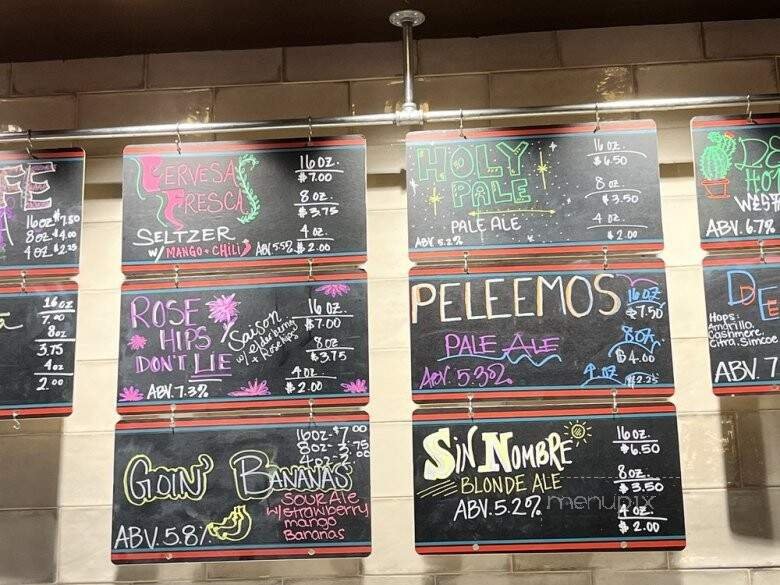 FE
16oz $7.50
8oz $4.00
4oz $2.25
16oz
7.00
8oz
3.75
4oz
2.00
CERVESA
FRESCA
SELTZER
W/ MANGO + CHILI
ABV 5.5%
16oz.
$7.00
8oz.
$3.75
4oz.
$2.00
ROSE
HIPS
DON'T LIE
Saison
w/ elderberry
+ Rosehips
ABV. 7.3%
16oz.
$7.00
8oz
$3.75
4oz.
$2.00
GOIN' BANANAS
16oz-$7.00
8oz-3.75
4oz-2.00
SOUR Ale
w/ strawberry
mango
Bananas
ABV. 5.8%
HOLY
PALE
PALE ALE
ABV 5.2%
16oz.
$6.50
8oz.
$3.50
4oz.
$2.00
PELEEMOS
PALE ALE
ABV. 5.3%
16oz
$7.50
8oz
$4.00
4oz
$2.25
SIN NOMBRE
BLONDE ALE
ABV. 5.2%
16oz.
$6.50
8oz.
$3.50
4oz.
$2.00
menupix
DE
HO
WEST
ABV. 6.7%
DE
Hops:
Amarillo,
Cashmere,
Citra, Simcoe
ABV. 7